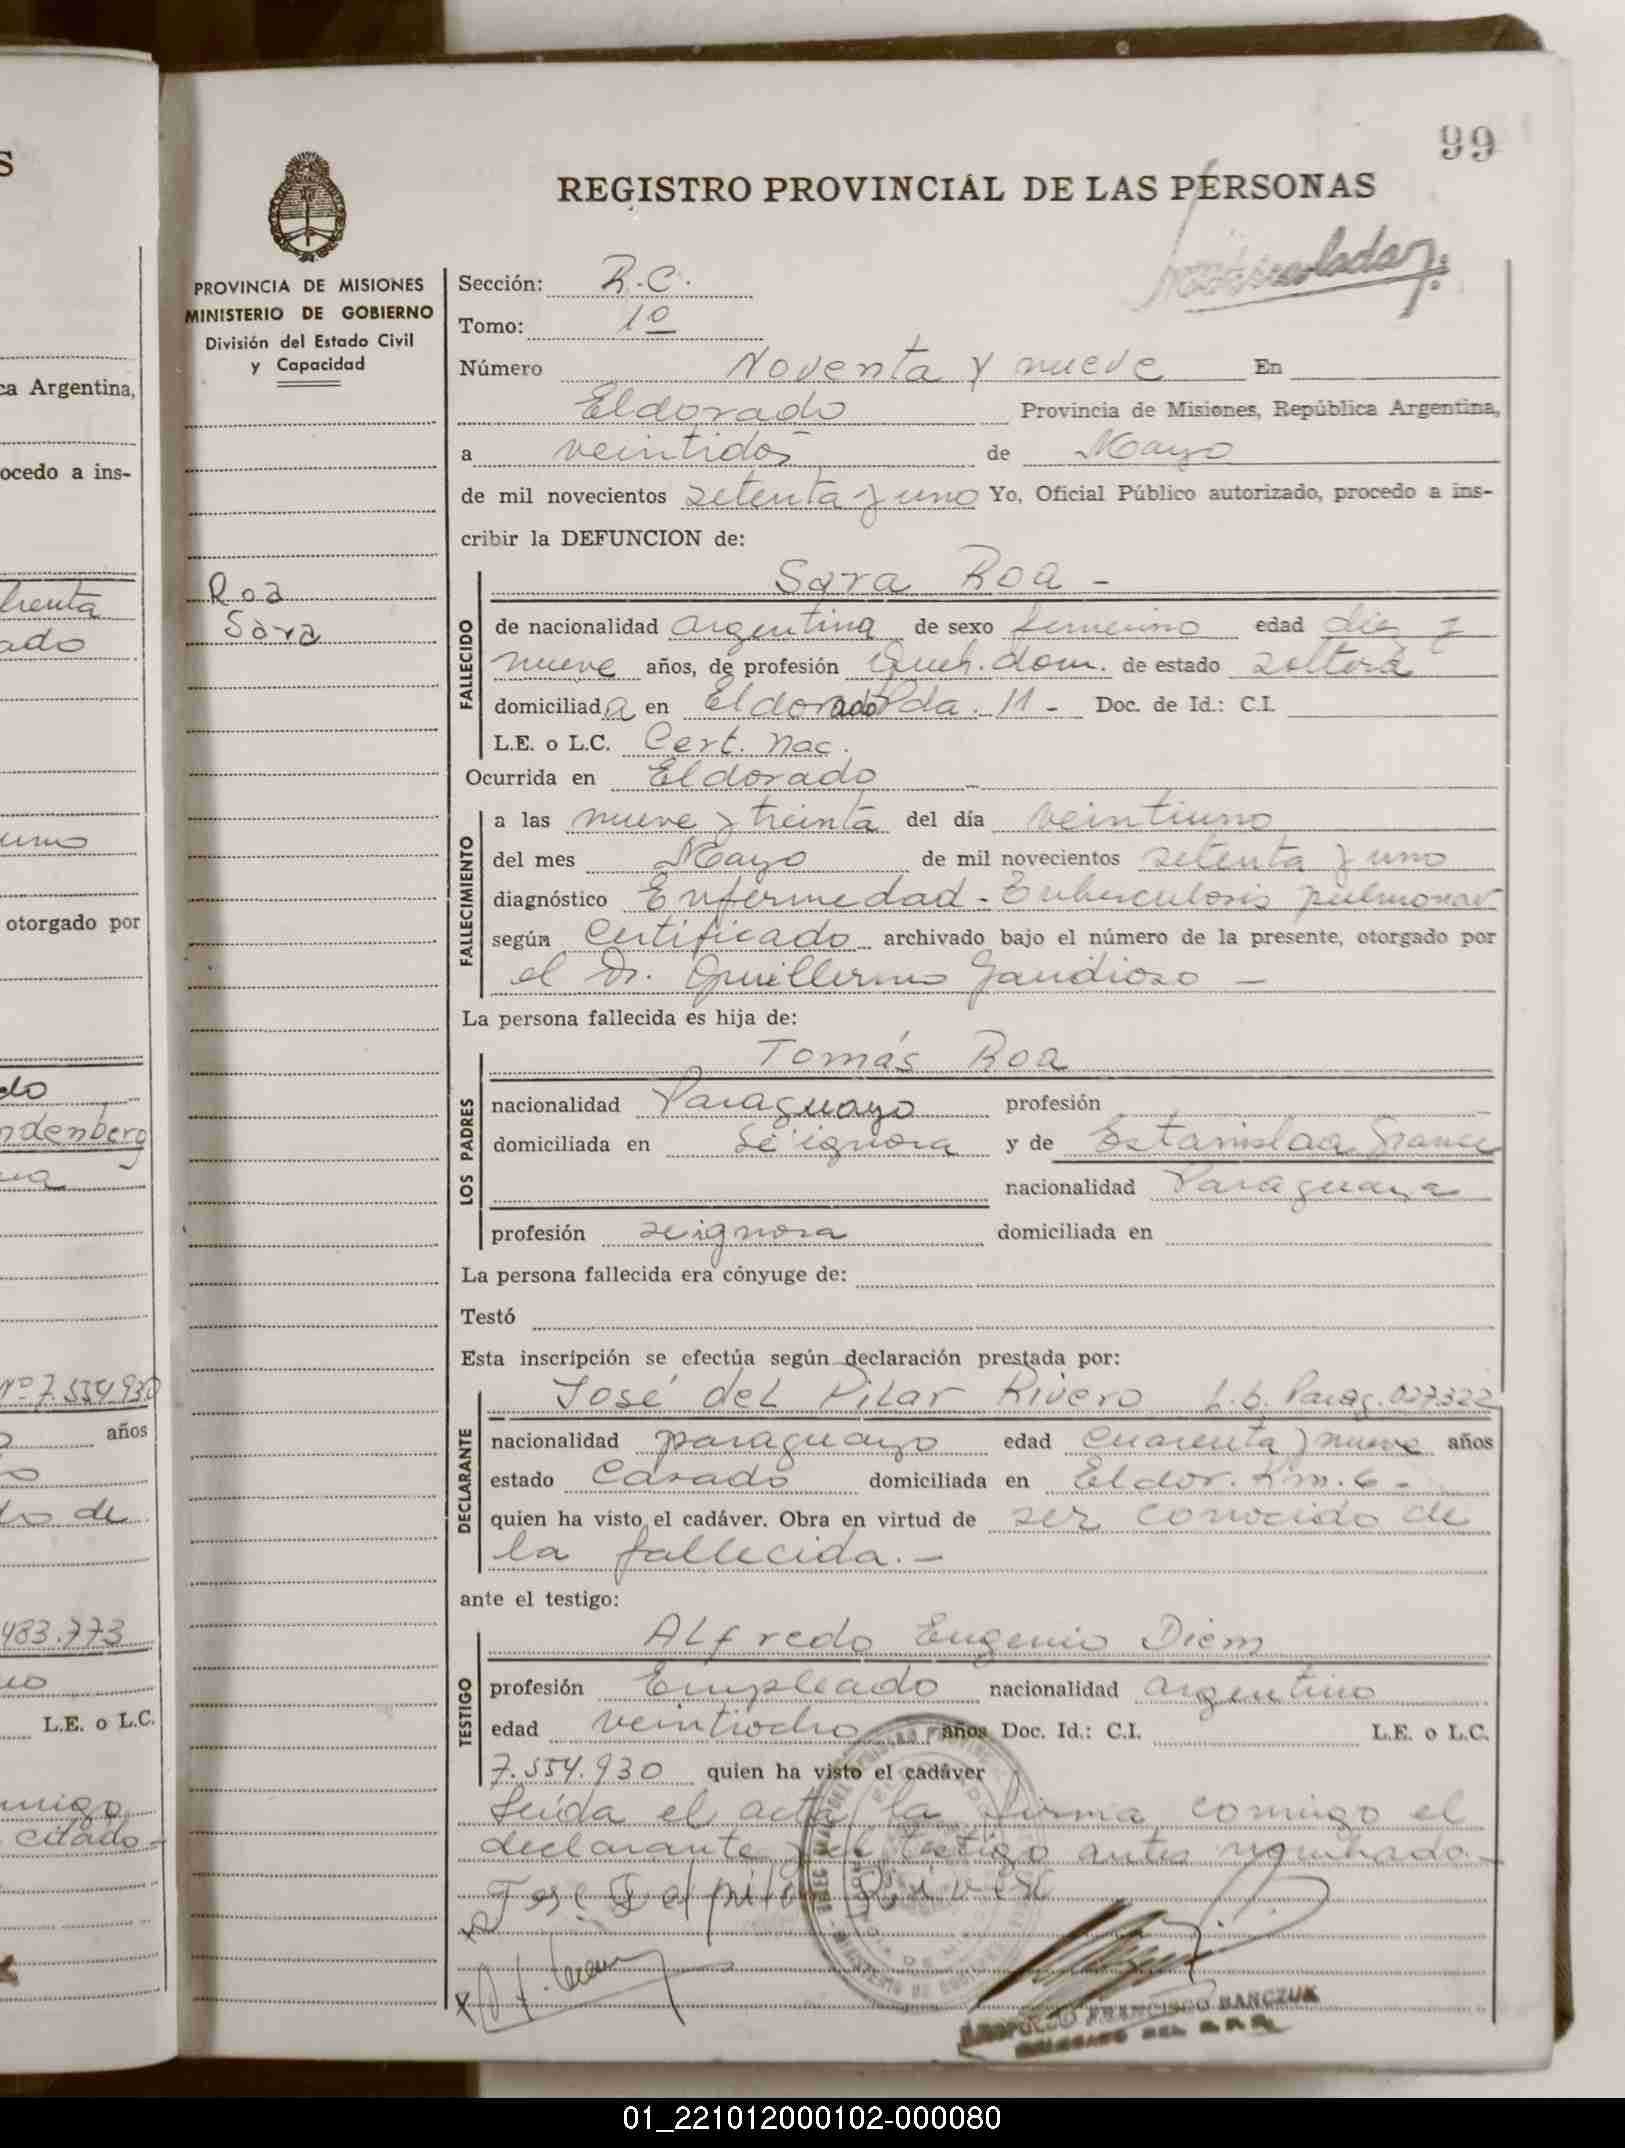 99
REGISTRO PROVINCIAL DE LAS PERSONAS
PROVINCIA DE MISIONES
MINISTERIO DE GOBIERNO
División del Estado Civil
y Capacidad
Roa
Sara
Sección: R.C.
Tomo: 1º
Número Noventa y nueve En
Eldorado Provincia de Misiones, República Argentina,
a veintidos de Mayo
de mil novecientos setenta y uno Yo, Oficial Público autorizado, procedo a ins-
cribir la DEFUNCION de:
FALLECIDO
Sara Roa -
de nacionalidad argentina de sexo femenino edad diez y
nueve años, de profesión Queh. dom. de estado soltera
domiciliada en Eldorado Pda. 11 - Doc. de Id.: C.I.
L.E. o L.C. Cert. Nac.
Ocurrida en Eldorado
FALLECIMIENTO
a las nueve y treinta del día veintiuno
del mes Mayo de mil novecientos setenta y uno
diagnóstico Enfermedad - Tuberculosis pulmonar
según Certificado archivado bajo el número de la presente, otorgado por
el Dr. Guillermo Gaudioso -
La persona fallecida es hija de:
LOS PADRES
Tomás Roa
nacionalidad Paraguayo profesión
domiciliada en Se ignora y de Estanislaa
nacionalidad Paraguaya
profesión se ignora domiciliada en
La persona fallecida era cónyuge de:
Testó
Esta inscripción se efectúa según declaración prestada por:
DECLARANTE
José del Pilar Rivero Parag. 027322
nacionalidad paraguayo edad cuarenta y nueve años
estado Casado domiciliada en Eldor. Km. 6 -
quien ha visto el cadáver. Obra en virtud de ser conocido de
la fallecida. -
ante el testigo:
TESTIGO
Alfredo Eugenio Diem
profesión Empleado nacionalidad argentino
edad veintiocho años Doc. Id.: C.I. L.E. o L.C.
7.554.930 quien ha visto el cadáver
Leída el acta la firma conmigo el
declarante y el testigo antes
FRANCISCO BANCZUK
DELEGADO DEL R.P.P.
S
ca Argentina,
ocedo a ins-
ado
otorgado por
do
ndenberg
Nº 7.554.930
años
do de
483.773
L.E. o L.C.
citado -
01_221012000102-000080